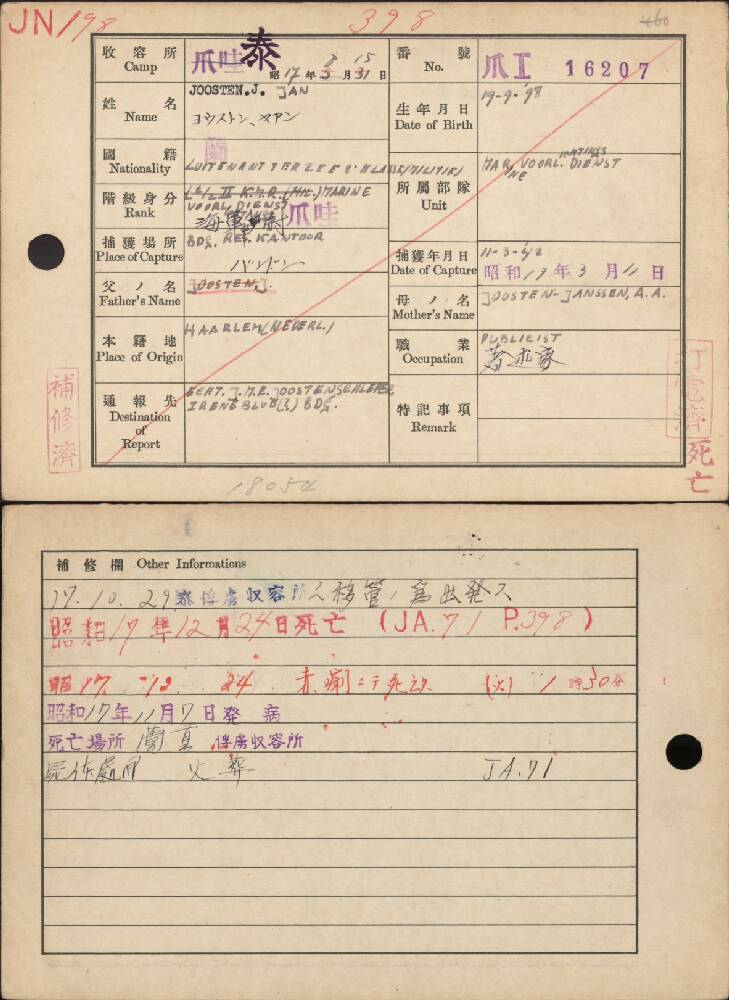 JN/198 398 460
收容所 Camp 爪哇 泰 8 15 昭17年3月31日 番號 No. 爪I 16207
姓名 Name JOOSTEN.J. JAN 生年月日 Date of Birth 19-9-'98
ヨウストン、ヤアン
國籍 Nationality 蘭 LUITENANT TER ZEE 2e KLASSE (MILITIE) 所属部隊 Unit MAR. VOORL. DIENST
階級身分 Rank K.M.R. (MIL.) MARINE
VOORL. DIENST
海軍 爪哇
捕獲場所 Place of Capture BDG. REG. KANTOOR 捕獲年月日 Date of Capture 11-3-'42
バンドン 昭和17年3月11日
父ノ名 Father's Name JOOSTEN, J. 母ノ名 Mother's Name JOOSTEN-JANSSEN, A.A.
本籍地 Place of Origin HAARLEM (NEDERL.) 職業 Occupation PUBLICIST
著述家
通報先 Destination of Report ECHT. J.M.E. JOOSTEN SCHLEPER, 特記事項 Remark
IRENE BLVD BDG.
補修済
打電済
死亡
18054
補修欄 Other Informations
17.10.29 泰俘虜収容所ヘ移管ノ為出発ス
昭和17年12月24日死亡 (JA.71 P.398)
昭17 12 24 赤痢ニテ死亡 (火) 1時30分
昭和17年11月7日発病
死亡場所 俘虜収容所
屍体處置 火葬 JA.71